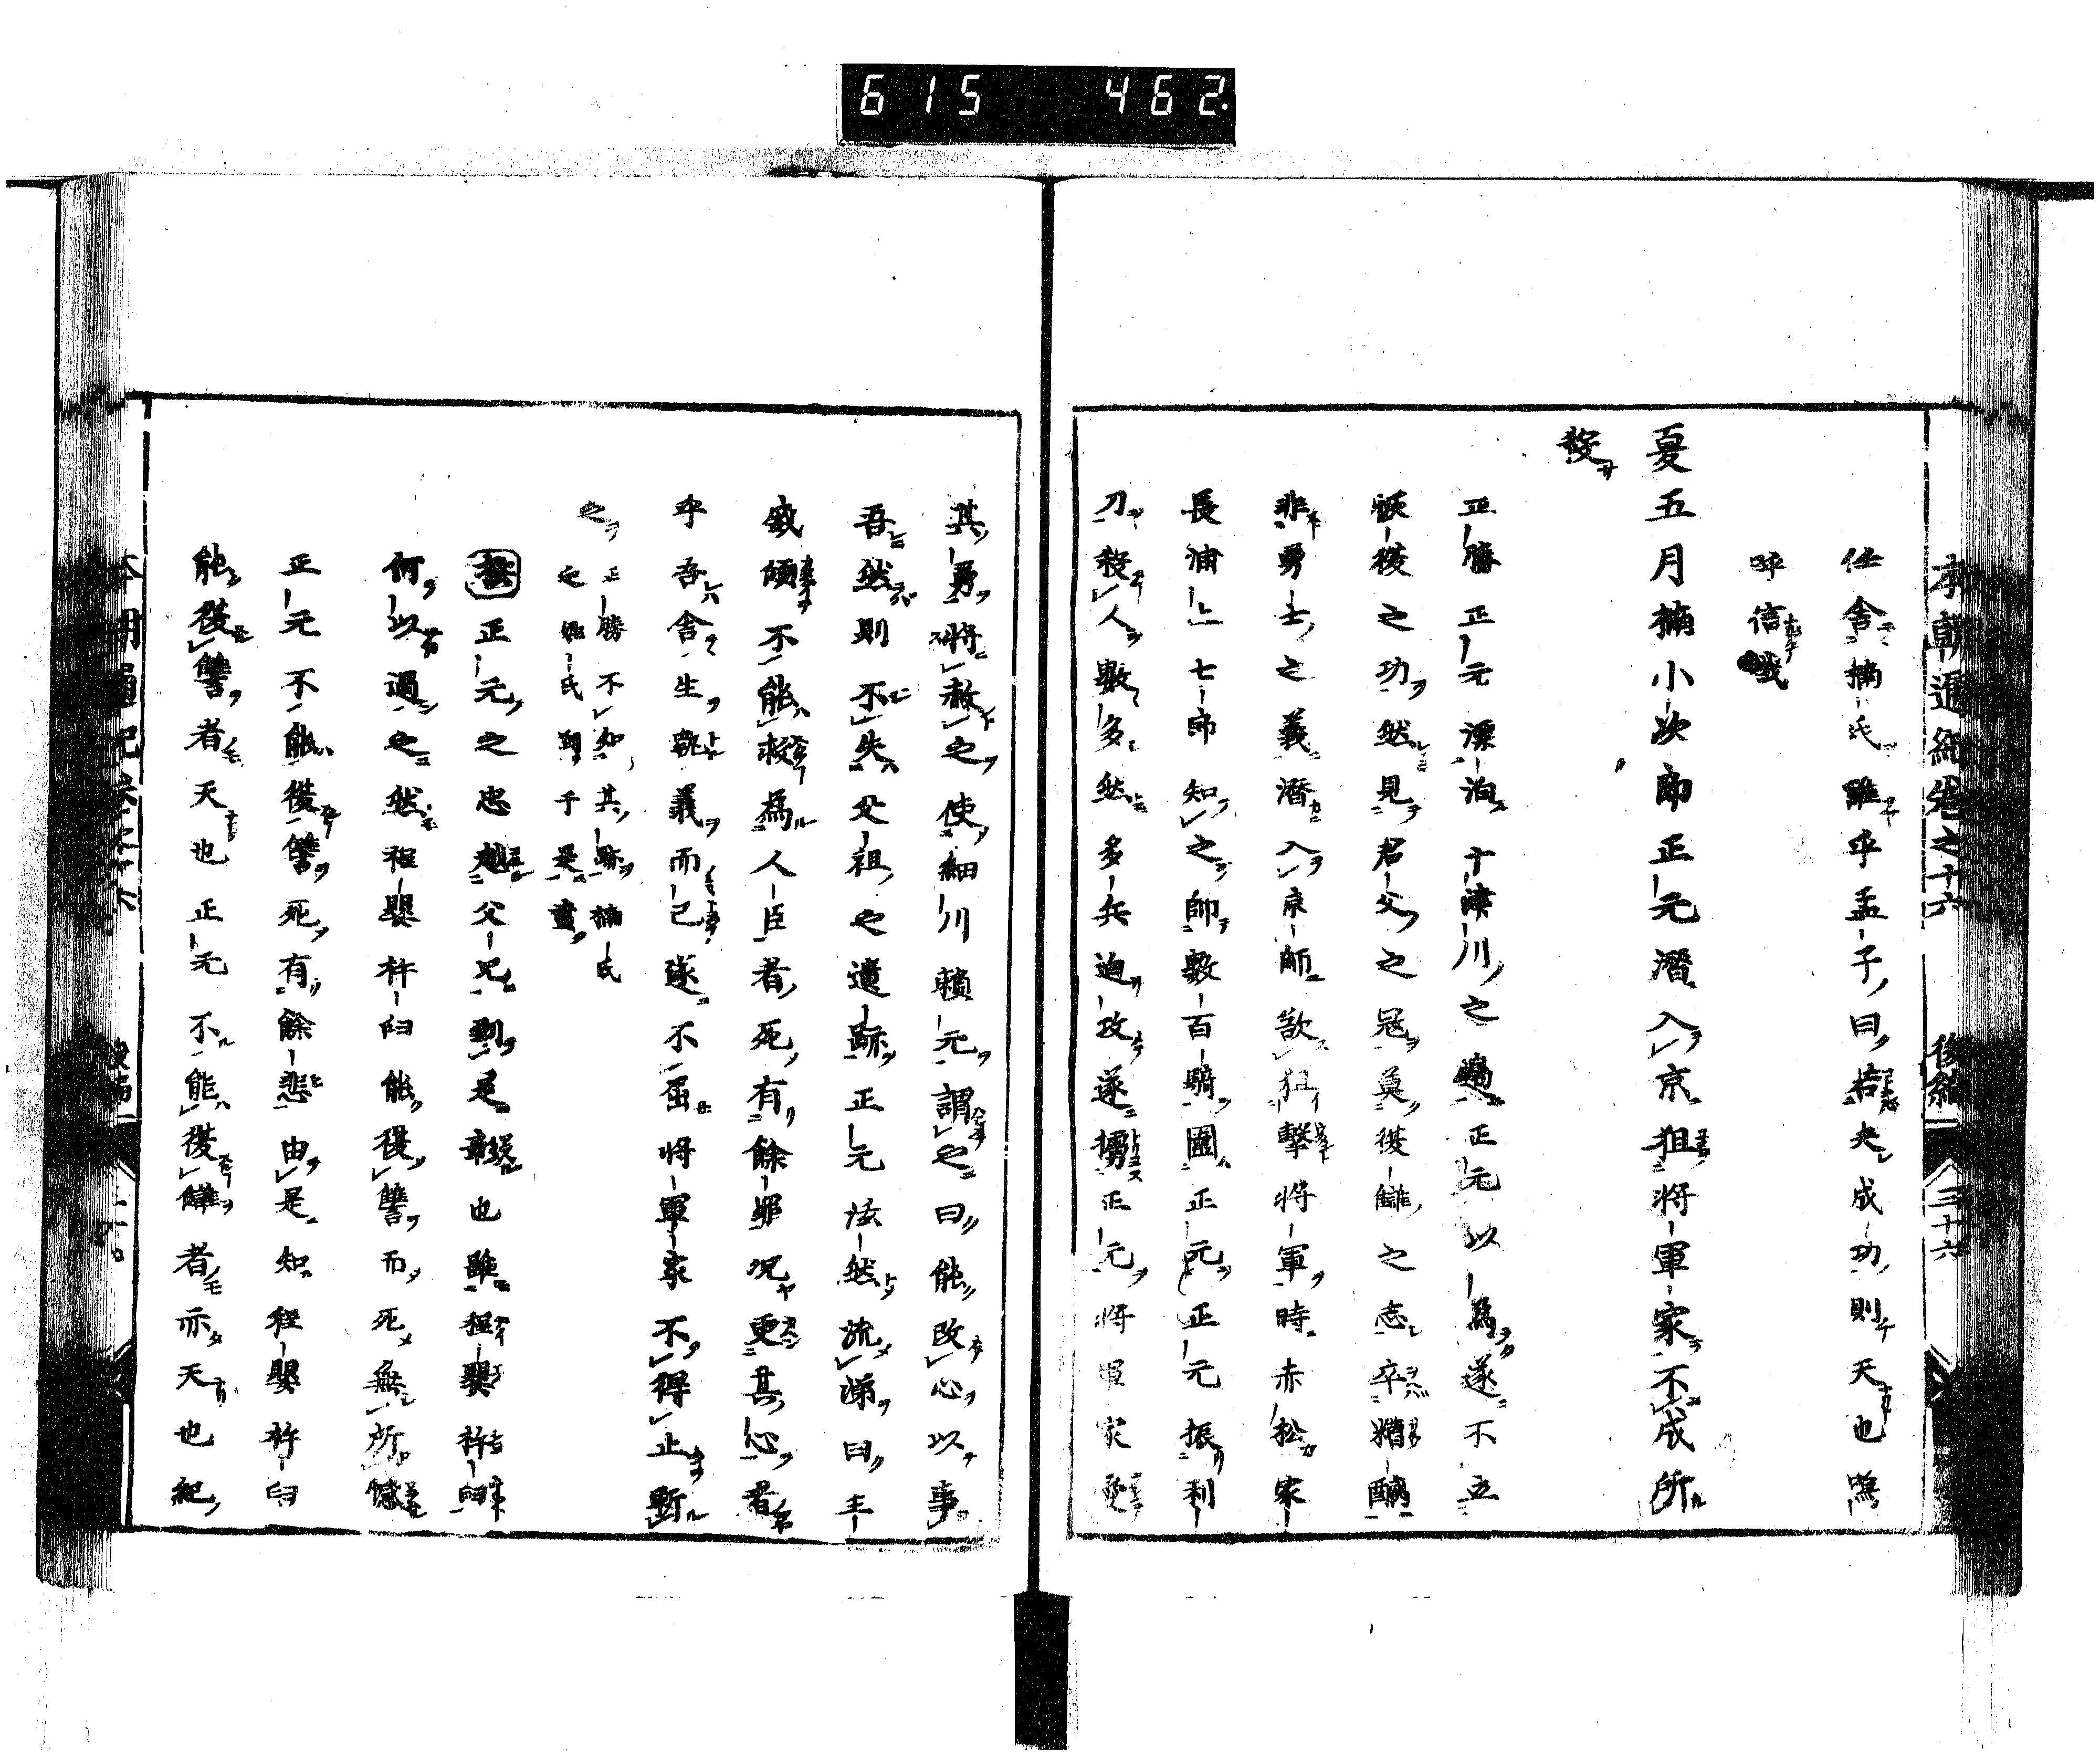 615 462
本朝通紀卷之十六 後編 三十六
仕舍楠氏雖乎孟子曰若夫成功則天也嗚
呼信哉
夏五月楠小次郎正元潛入京狙將軍家不成所
殺
正勝正元漂泊十津川之邊正元以為遂不立
恢復之功然見君父之冠莫復讎之志卒糟醨
非勇士之義潛入京師欲狙擊將軍時赤松家
長浦上七郎知之帥數百騎圍正元正元振利
刀殺人數多然多兵迫攻遂擒正元將軍家愛
其勇將赦之使細川賴元謂之曰能改心以事
吾然則不失父祖之遺跡正元泫然流涕曰主
威傾不能救為人臣者死有餘罪況更其心者
乎吾舍生執義而已遂不屈將軍家不得止斬
之 正勝不知其跡楠氏
之
正元之忠越父兄是章也雖程嬰杵臼
何以過之然程嬰杵臼能復讐而死無所憾
正元不能復讐死有餘悲由是知程嬰杵臼
能復讐者天也正元不能復讎者亦天也紀